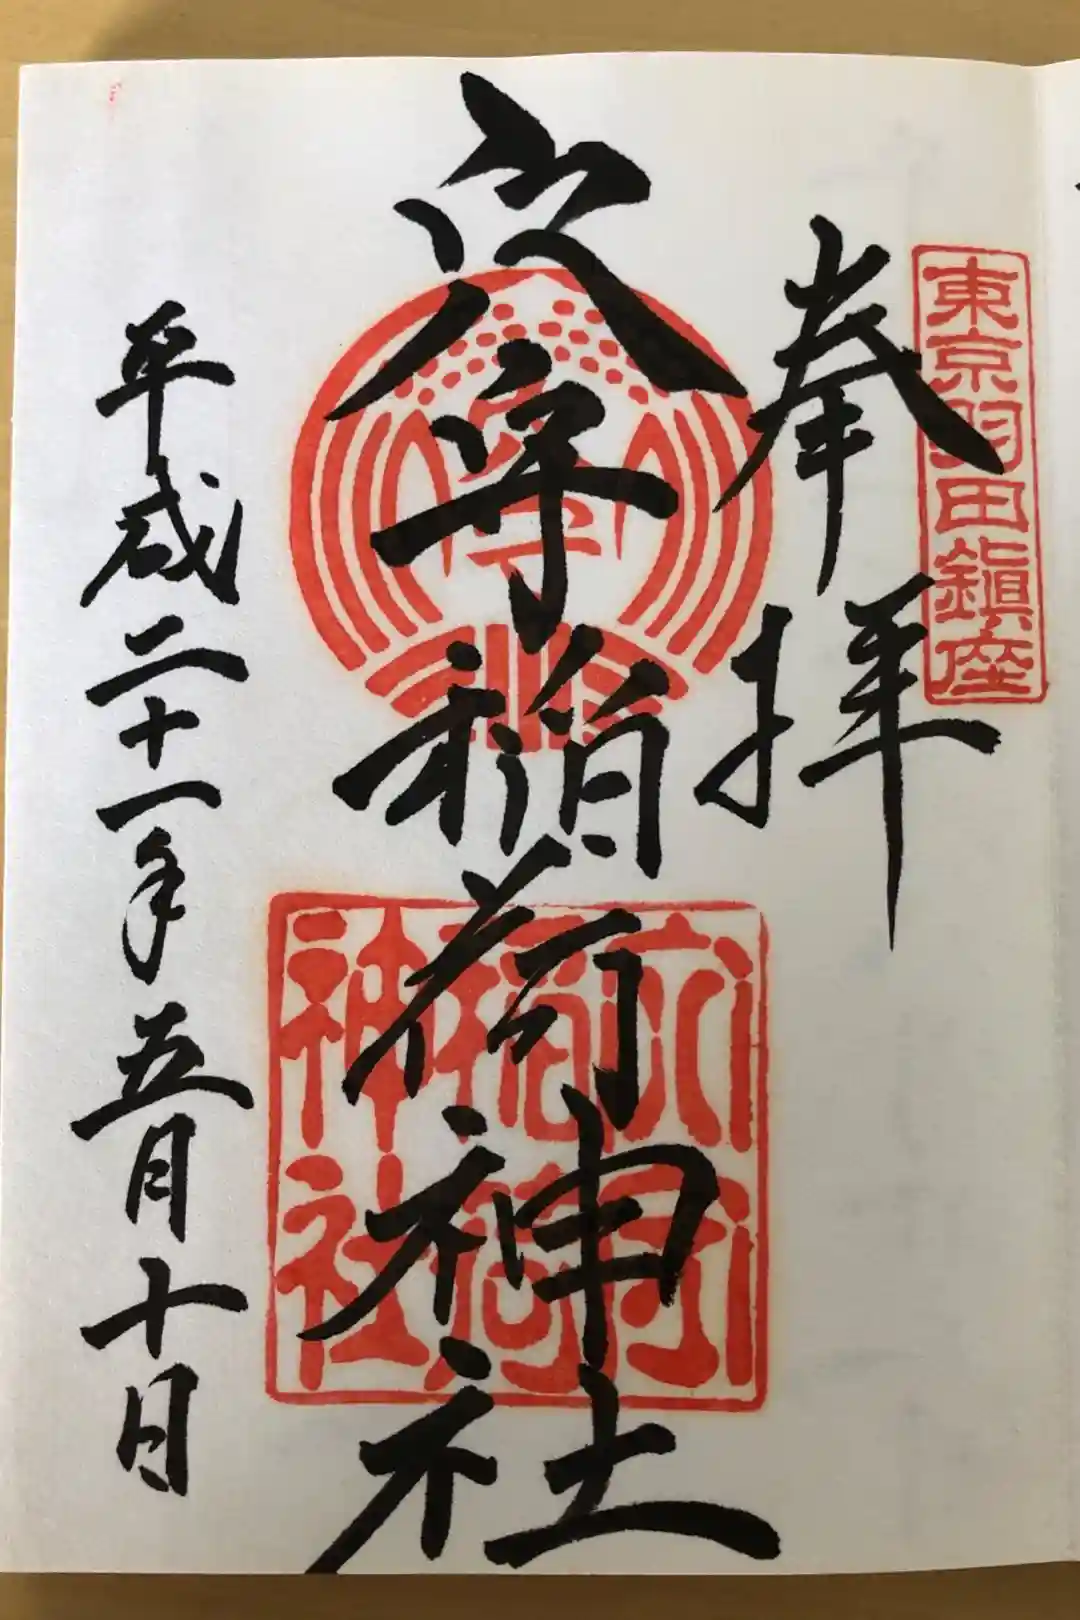 東京羽田鎮座
奉拝
穴守稲荷神社
守
穴守稲荷神社
平成二十一年五月十日